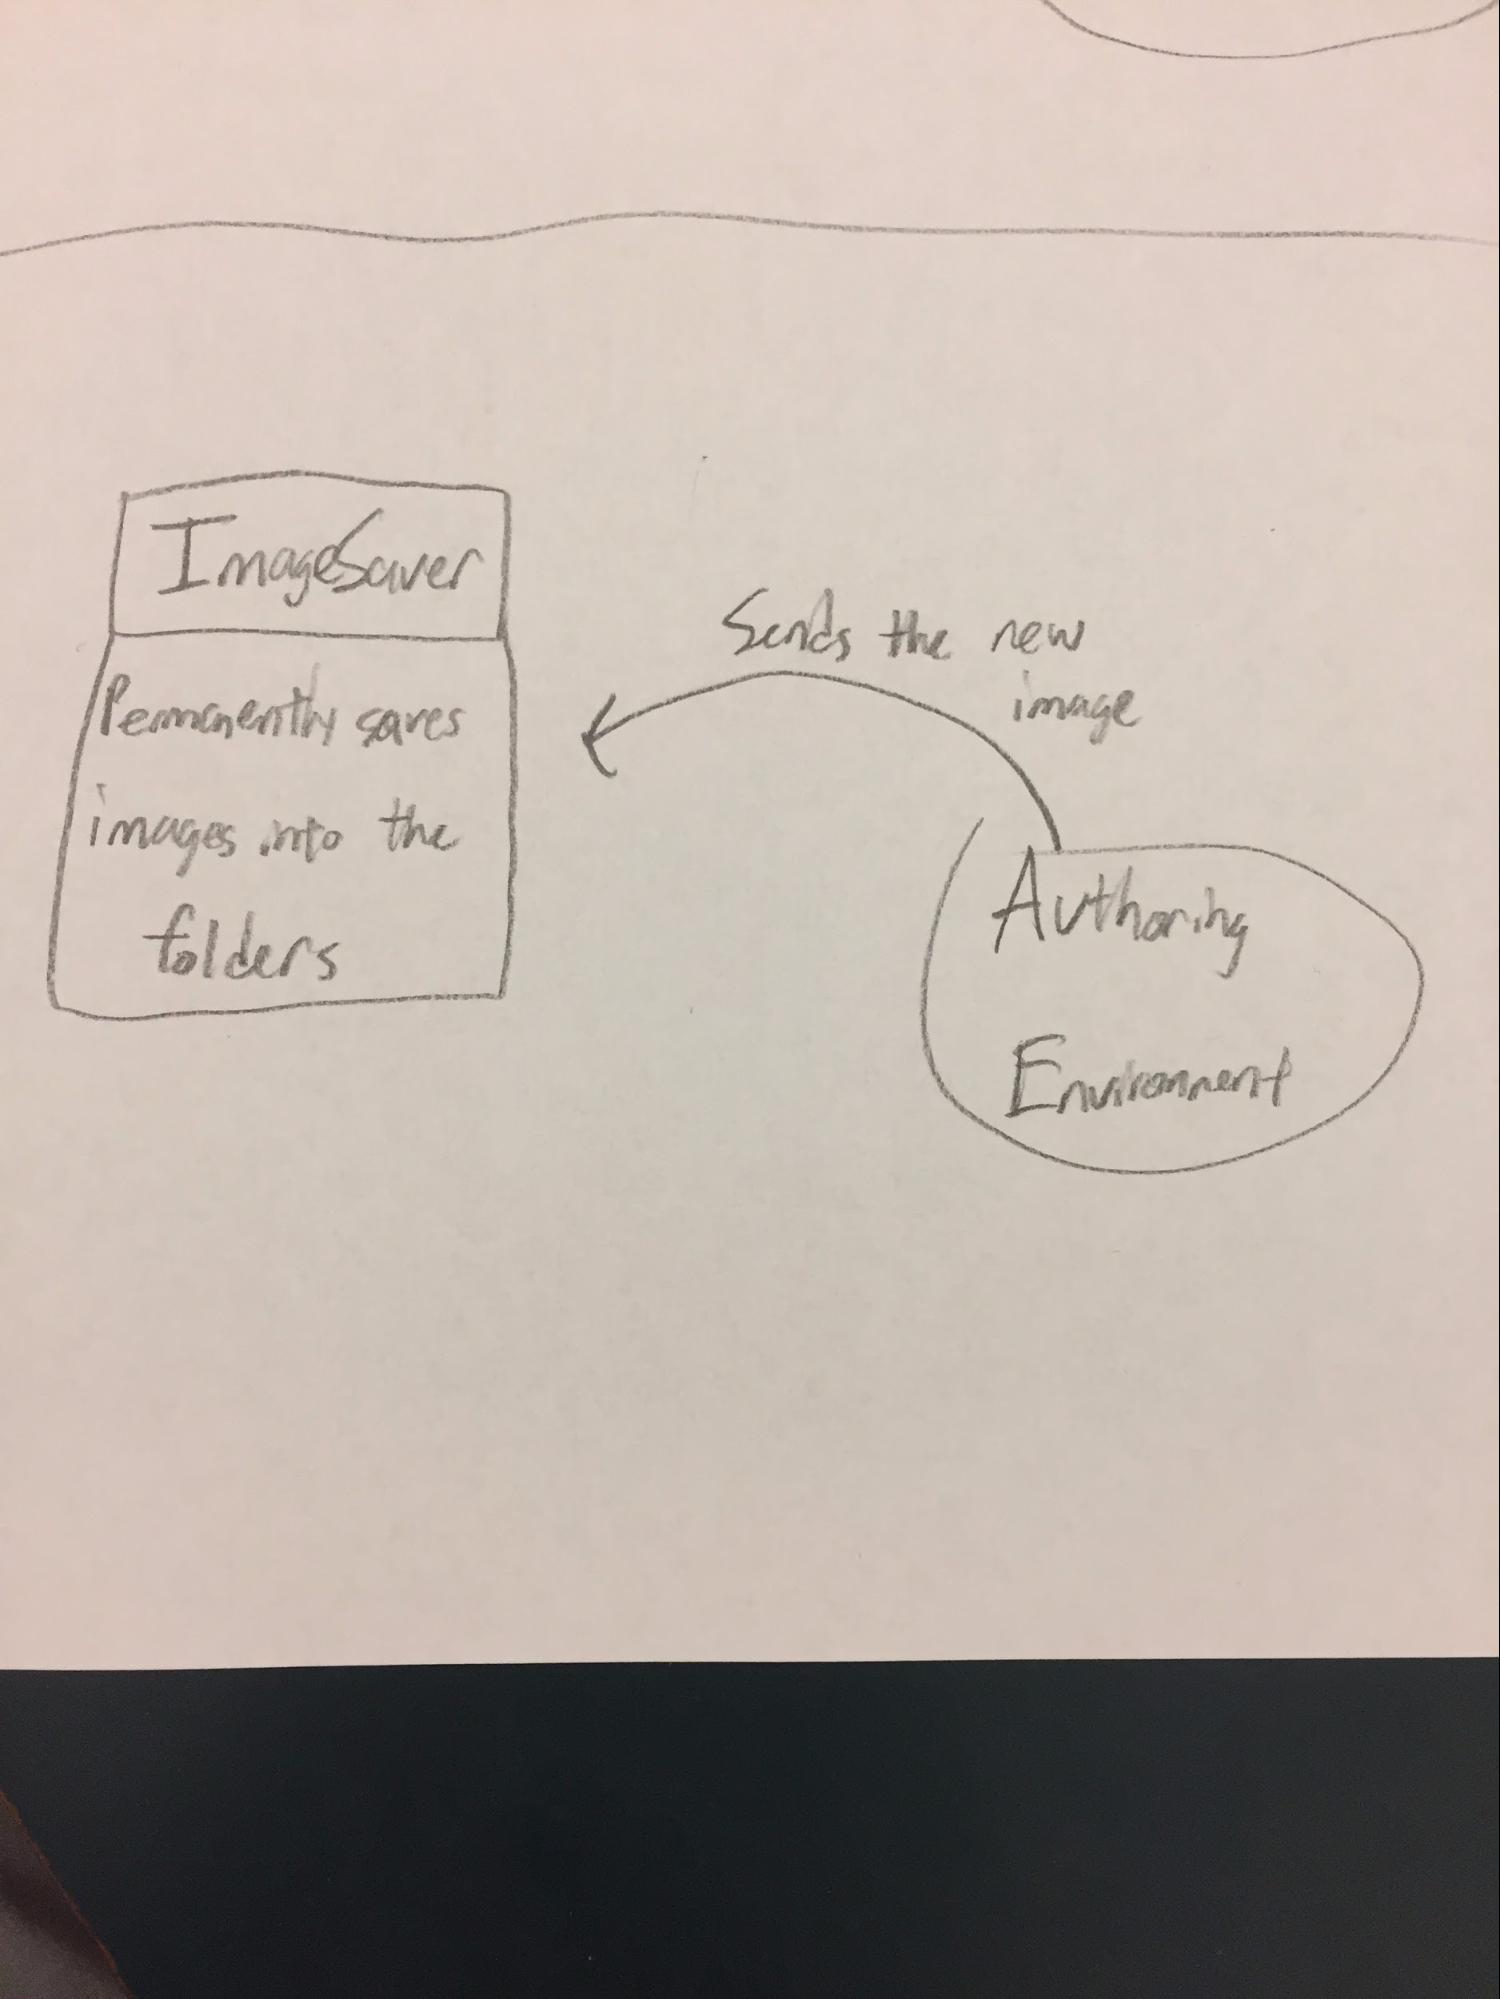 ImageSaver
Permanently saves
images into the
folders
Sends the new
image
Authoring
Environment